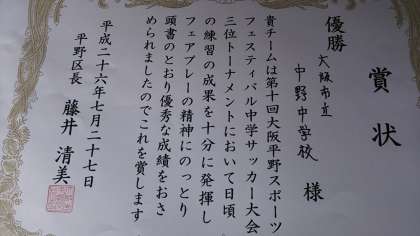 賞状
優勝
大阪市立
中野中学校 様
貴チームは第十回大阪平野スポーツ
フェスティバル中学サッカー大会
三位トーナメントにおいて日頃
の練習の成果を十分に発揮し
フェアプレーの精神にのっとり
頭書のとおり優秀な成績をおさ
められましたのでこれを賞します
平成二十六年七月二十七日
平野区長 藤井 清美